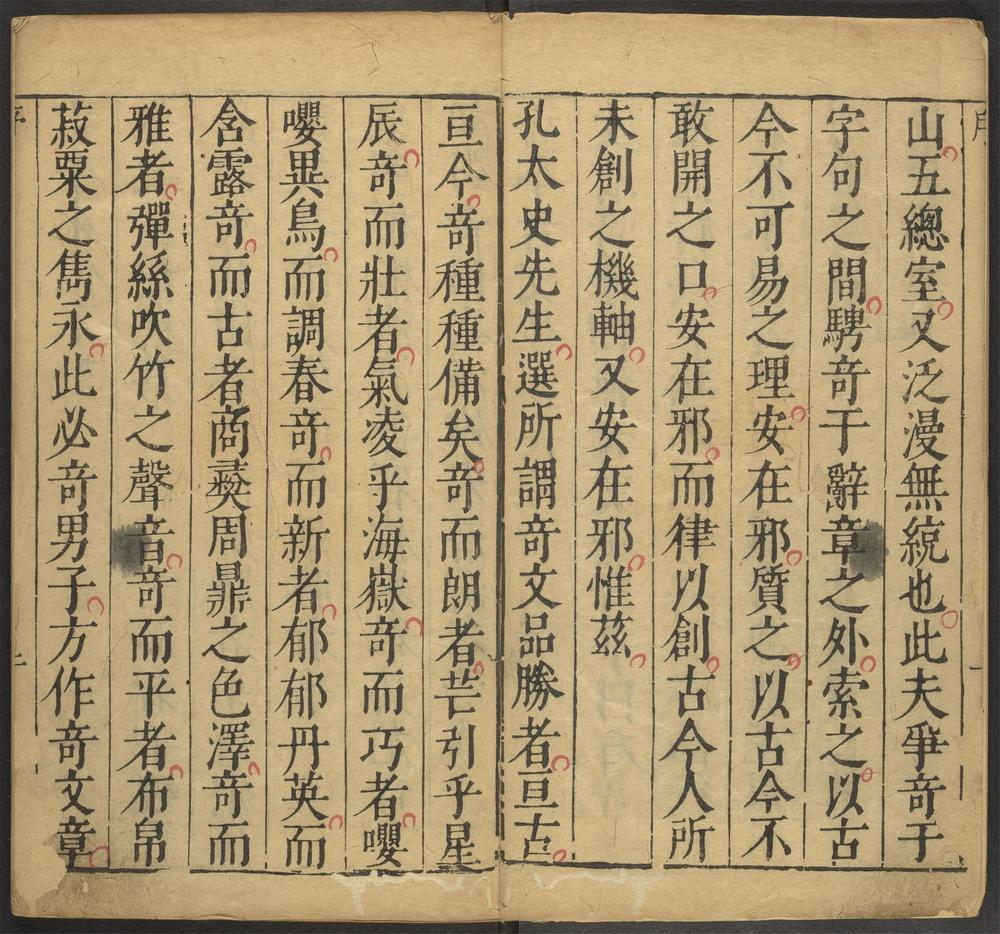 山五總室又泛漫無統也此夫爭竒于
字句之間騁竒于辭章之外索之以古
今不可易之理安在邪質之以古今不
敢開之口安在邪而律以創古今人所
未創之機軸又安在邪惟茲
孔太史先生選所謂竒文品勝者亘古
亘今竒種種備矣竒而朗者芒引乎星
辰竒而壯者氣凌乎海嶽竒而巧者嚶
嚶異鳥而調春竒而新者郁郁丹英而
含露竒而古者商彝周鼎之色澤竒而
雅者彈絲吹竹之聲音竒而平者布帛
菽粟之雋永此必竒男子方作竒文章